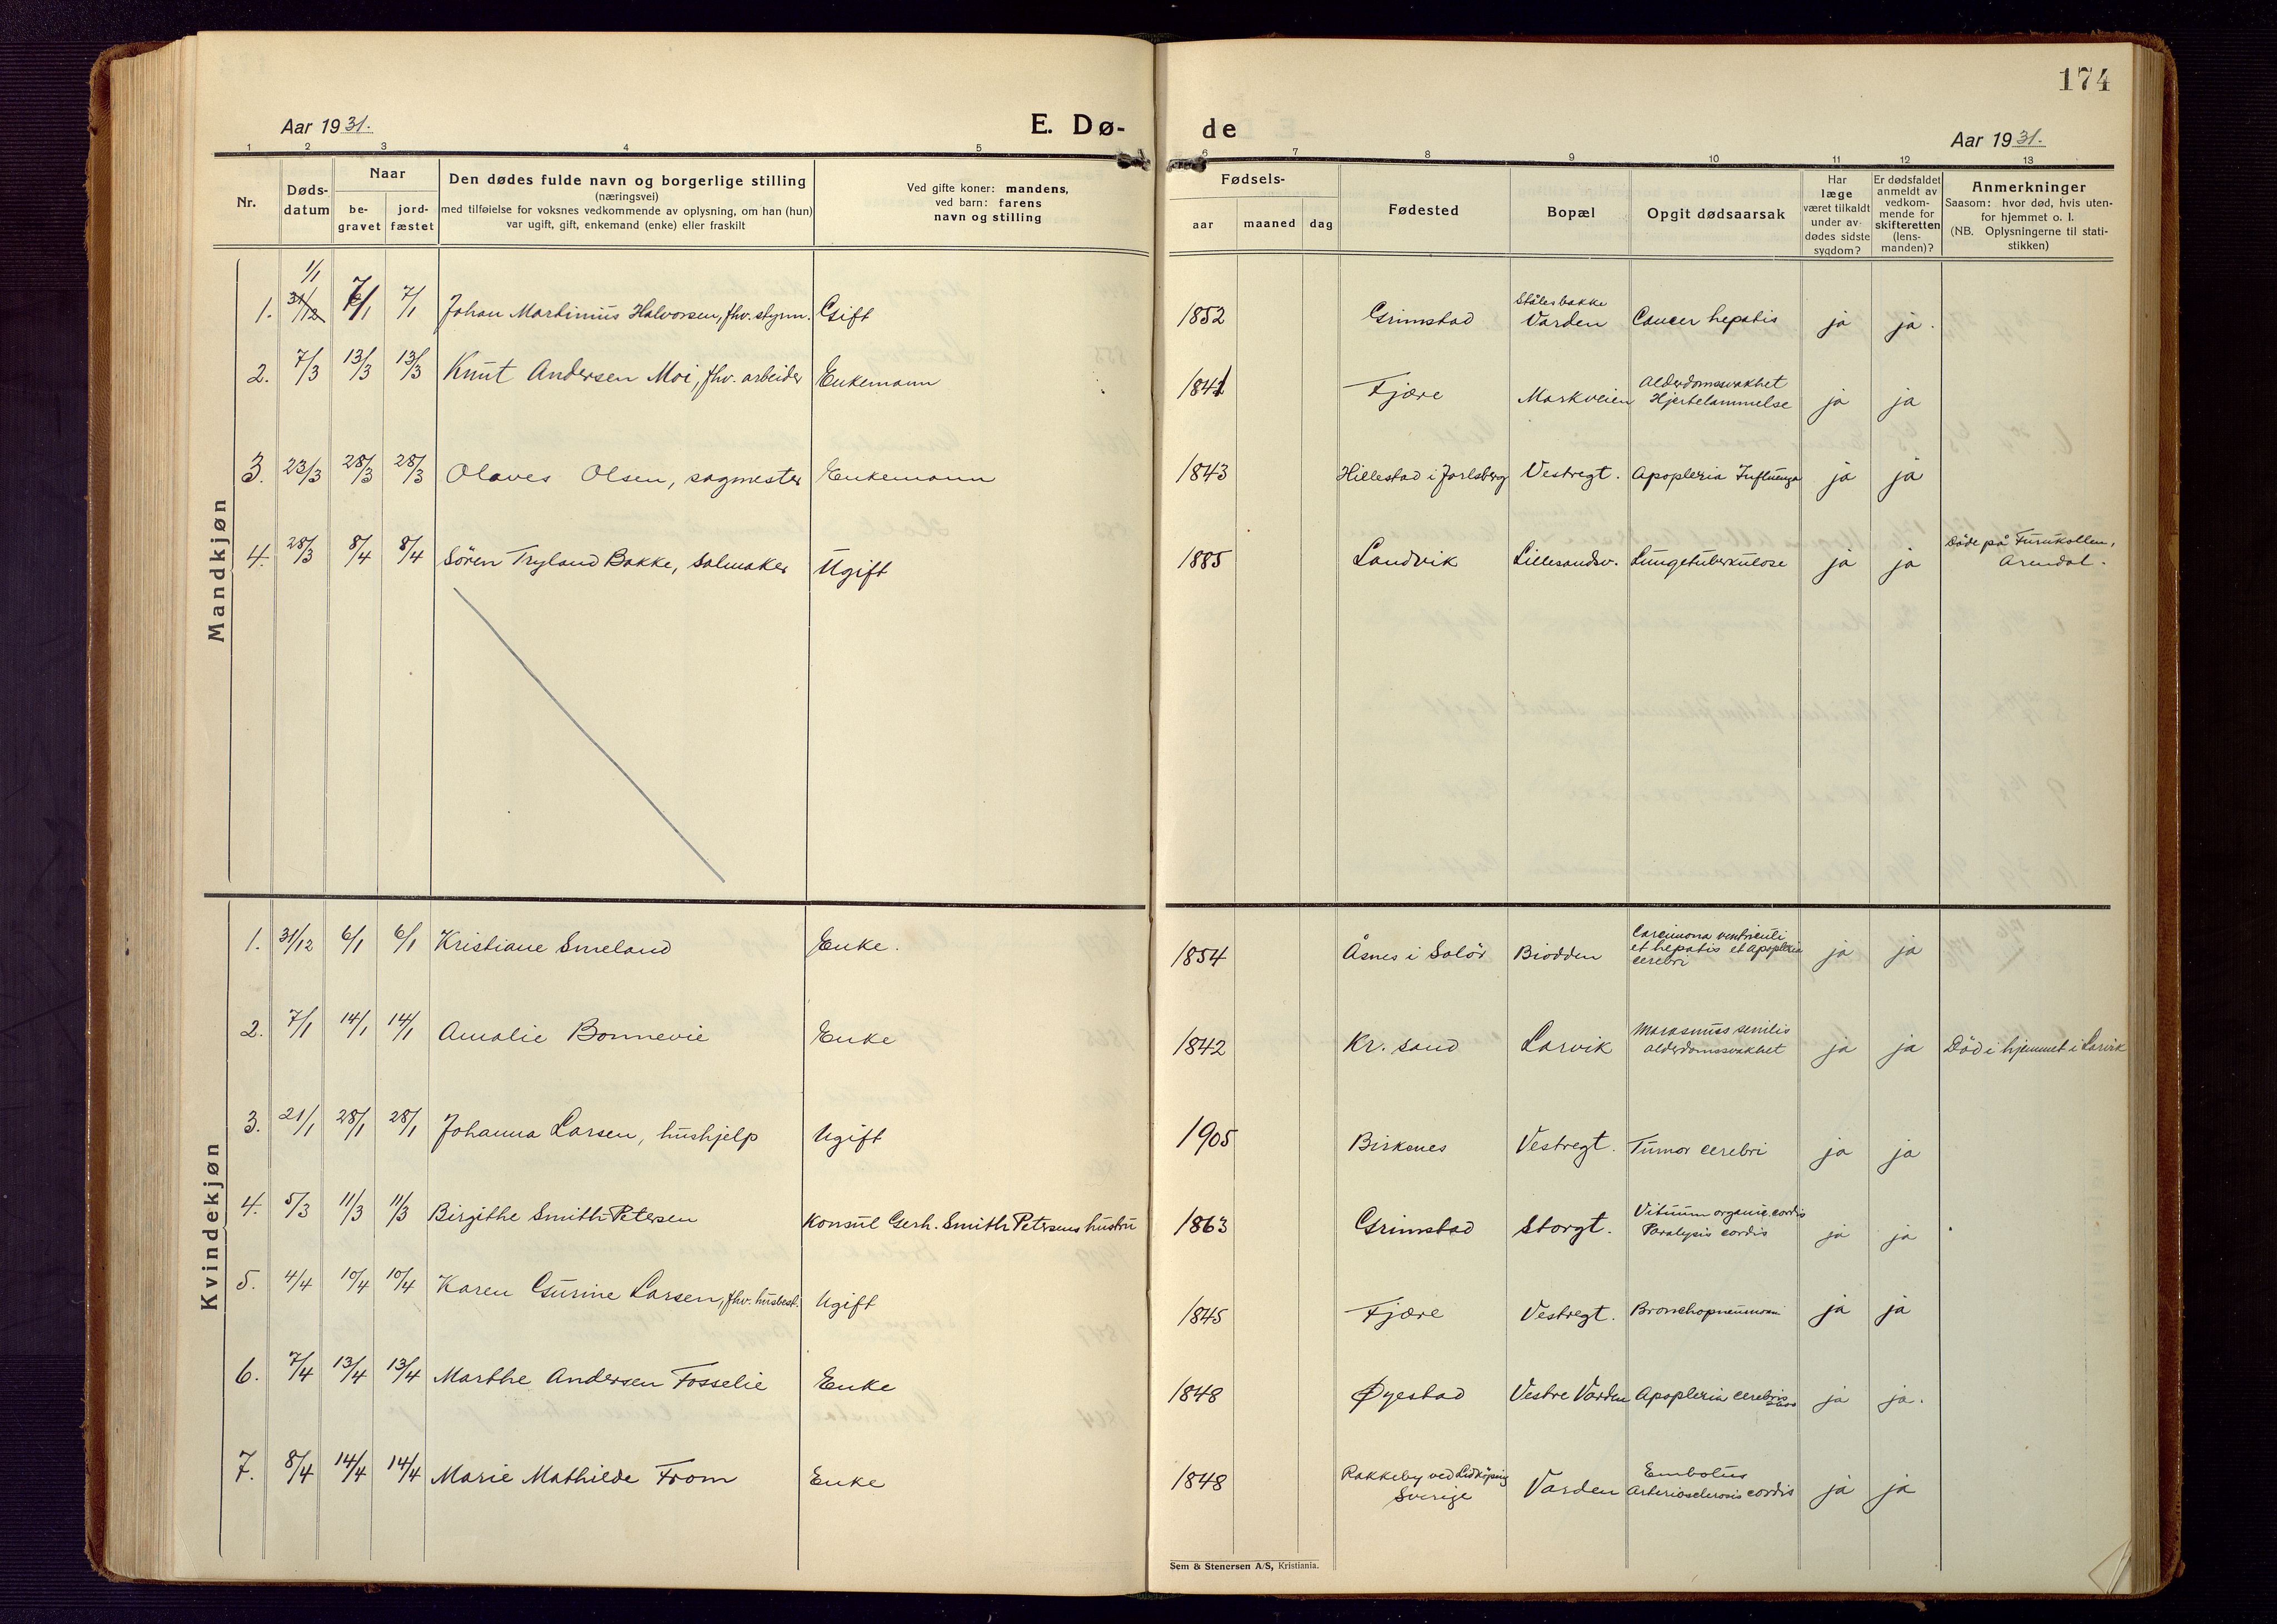 174
Aar 1931.
E. Dø-
de
Aar 1931.
1 2 3 4 5 6 7 8 9 10 11 12 13
Nr.
Døds-
datum
Naar
be-
gravet
jord-
fæstet
Den dødes fulde navn og borgerlige stilling
(næringsvei)
med tilføielse for voksnes vedkommende av oplysning, om han (hun)
var ugift, gift, enkemand (enke) eller fraskilt
Ved gifte koner: mandens,
ved barn: farens
navn og stilling
Fødsels-
aar maaned dag
Fødested
Bopæl
Opgit dødsaarsak
Har
læge
været tilkaldt
under av-
dødes sidste
sygdom?
Er dødsfaldet
anmeldt av
vedkom-
mende for
skifteretten
(lens-
manden)?
Anmerkninger
Saasom: hvor død, hvis uten-
for hjemmet o. l.
(NB. Oplysningerne til stati-
stikken)
Mandkjøn
1/1
1. 31/12 7/1 7/1 Johan Martinius Halvorsen, fhv. styrm. Gift 1852 Grimstad Stålesbakke
Varden Cancer hepatis ja ja.
2. 7/3 13/3 13/3 Knut Andersen Moi, fhv. arbeider Enkemann 1841 Fjære Markveien Alderdomssvakhet
Hjertelammelse ja ja
3. 23/3 28/3 28/3 Olaves Olsen, sagmester Enkemann 1843 Hillestad i Jarlsberg Vestregt. Apoplexia Influenza ja ja
4. 28/3 8/4 8/4 Sören Tryland Bakke, salmaker Ugift 1885 Landvik Lillesandsv. Lungetuberkulose ja ja Döde på Furukollen,
Arendal.
Kvindekjøn
1. 31/12 6/1 6/1 Kristiane Smeland Enke. 1854 Åsnes i Solör Biodden Carcinoma ventriculi
et hepatis et apoplexia
cerebri ja ja
2. 7/1 14/1 14/1 Amalie Bonnevie Enke 1842 Kr. sand Larvik Marasmus senilis
alderdomssvakhet ja ja Död i hjemmet i Larvik
3. 21/1 28/1 28/1 Johanna Larsen, hushjelp Ugift 1905 Birkenes Vestregt. Tumor cerebri ja ja
4. 5/3 11/3 11/3 Birgithe Smith Petersen Konsul Gerh. Smith Petersens hustru 1863 Grimstad Storgt. Vitium organic. cordis
Paralysis cordis ja ja
5. 4/4 10/4 10/4 Karen Gurine Larsen, fhv. husbest. Ugift 1845 Fjære Vestregt. Bronchopneumoni ja ja
6. 7/4 13/4 13/4 Marthe Andersen Fosselie Enke 1848 Øyestad Vestre Varden Apoplexia cerebri ja ja.
7. 8/4 14/4 14/4 Marie Mathilde From Enke 1848 Rakkeby ved Lidköping
Sverige Varden Embolus
Arteriosclerosis cordis ja ja
Sem & Stenersen A/S, Kristiania.